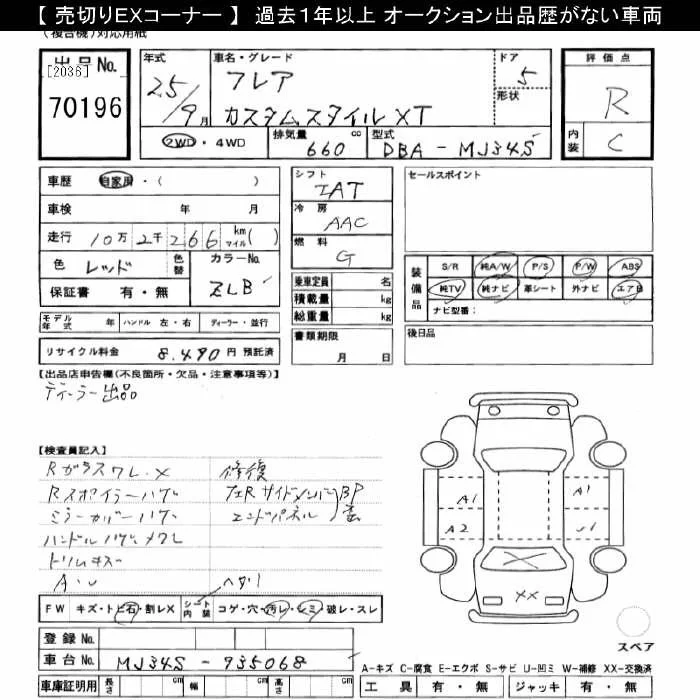 【 売切りEXコーナー 】 過去1年以上 オークション出品歴がない車両
(複合機)対応用紙
出品No.
[2036]
70196
年式
25/9月
車名・グレード
フレア
カスタムスタイル XT
ドア
5
形状
評価点
R
内装
C
2WD・4WD
排気量 660 cc
型式 DBA-MJ34S
車歴 自家用・( )
車検 年 月
走行 10万2千266 km マイル( )
色 レッド 色替
カラーNo. ZLB
保証書 有・無
シフト
IAT
冷房
AAC
燃料
G
乗車定員 名
積載量 kg
総重量 kg
書類期限
月 日
セールスポイント
装備品
S/R 純A/W P/S P/W ABS
純TV 純ナビ 革シート 外ナビ エアB
ナビ型番:
後日品
モデル年式 年 ハンドル 左・右 ディーラー・並行
リサイクル料金 8,490 円 預託済
【出品店申告欄(不良箇所・欠品・注意事項等)】
ディーラー出品
【検査員記入】
Rガラスワレ・X 修復
Rスポイラーハゲ
ミラーカバーハゲ エンドパネル
BP
ハンドルハゲ、メクレ
トリムキズ
A・U ヘタリ
A1
A2
A1
U1
X
XX
FW キズ・トビ石・割レX シート内装 コゲ・穴・汚レ・シミ・破レ・スレ
スペア
登録No.
車台No. MJ34S-735068
A-キズ C-腐食 E-エクボ S-サビ U-凹ミ W-補修 XX-交換済
車庫証明用 長さ cm 幅 cm 高さ cm
工具 有・無 ジャッキ 有・無